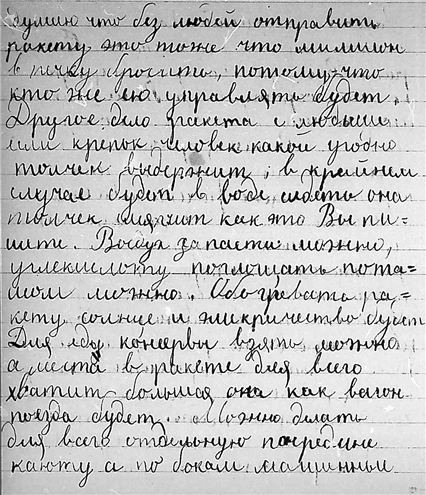 думаю что без людей отправить
ракету это тоже что миллион
в печку бросить, потому-что
кто же ею управлять будет.
Другое дело ракета с людьми
если крепок человек какой угодно
толчек выдержит, в крайнем
случае будет в воде сидеть она
толчек смягчит как это Вы пи=
шите. Воздух запасти можно,
углекислоту поглощать пота=
шом можно. Обогревать ра=
кету солнце и электричество будет
Для еду консервы взять можно
а места в ракете для всего
хватит большая она как вагон
поезда будет. Можно делать
для всего отдельную посредине
каюту а по бокам машинные